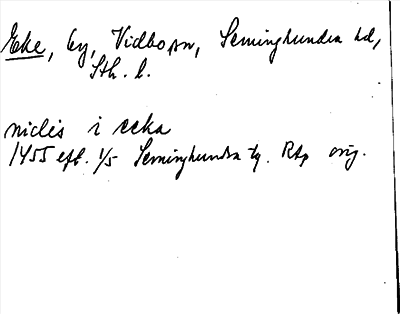 Eke, by, Vidbo sn, Seminghundra hd,
Sth. l.
niclis i eeka
1455 eft. 1/5 Seminghundra tg. RAp orig.